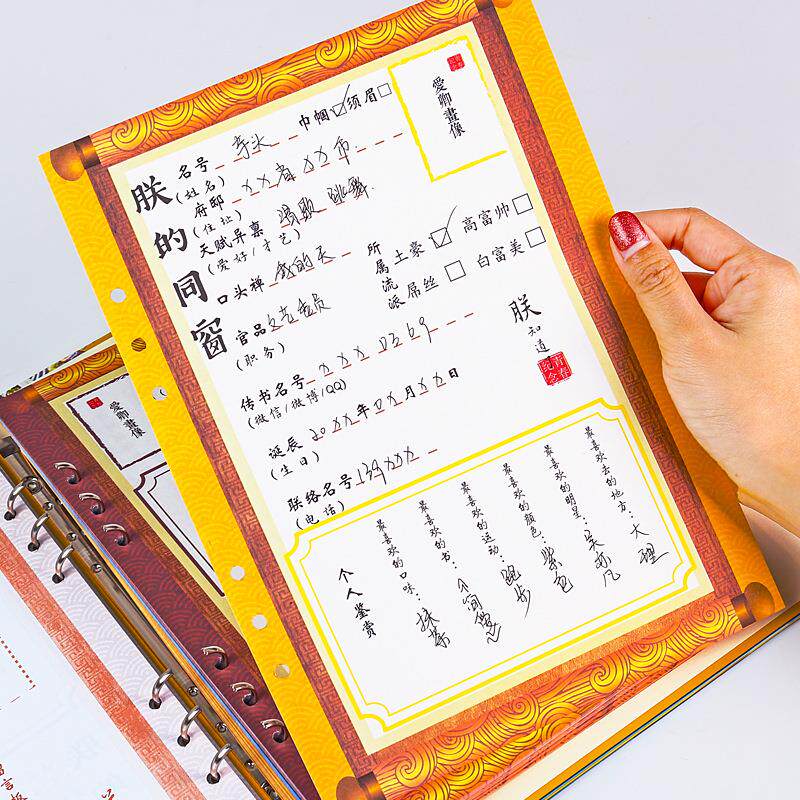 朕的同窗
名号 芽头 巾帼 须眉
(姓名)
府邸 XX省XX市
(住址)
天赋异禀 唱歌 跳舞
(爱好/才艺)
口头禅 我的天
官品 文艺委员
(职务)
所属流派
土豪 高富帅
屌丝 白富美
传书名号 xxx0369
(微信/微博/QQ)
诞辰 20XX年0X月XX日
(生日)
联络名号 139xxxx
(电话)
愛卿畫像
青春纪念
朕知道
青春纪念
最喜欢去的地方:大理
最喜欢的明星:吴亦凡
最喜欢的颜色:紫色
最喜欢的运动:跑步
最喜欢的书:
最喜欢的口味:抹茶
个人鉴赏
愛卿畫像
留言板